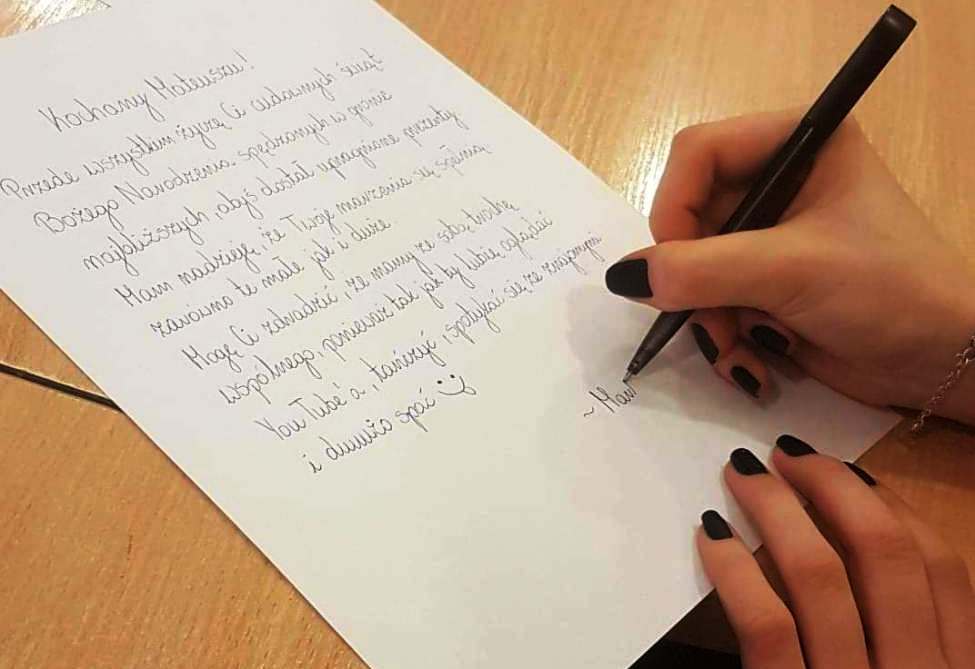 Kochany Mateuszu!
Przede wszystkim życzę Ci cudownych świąt
Bożego Narodzenia spędzonych w gronie
najbliższych, abyś dostał upragnione prezenty.
Mam nadzieję, że Twoje marzenia się spełnią,
zarówno te małe jak i duże.
Mogę Ci zdradzić, że mamy ze sobą trochę
wspólnego, ponieważ tak jak ty lubię oglądać
YouTube'a, tańczyć i spotykać się ze znajomymi
i duuużo spać
~ Mar